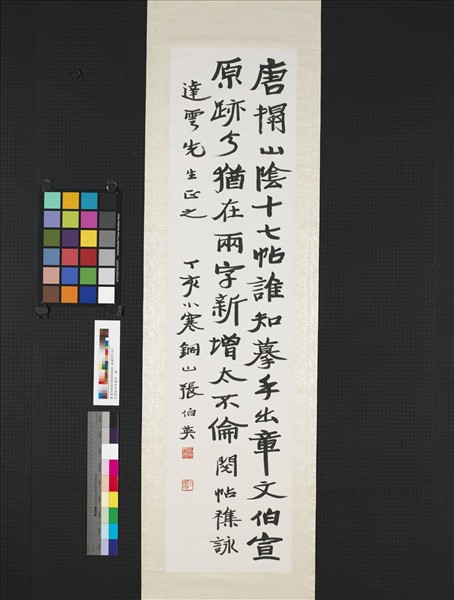 唐搨山陰十七帖誰知摹手出章文伯宣
原跡今猶在兩字新增太不倫 閱帖襍詠
達雲先生正之 丁亥小寒銅山張伯英